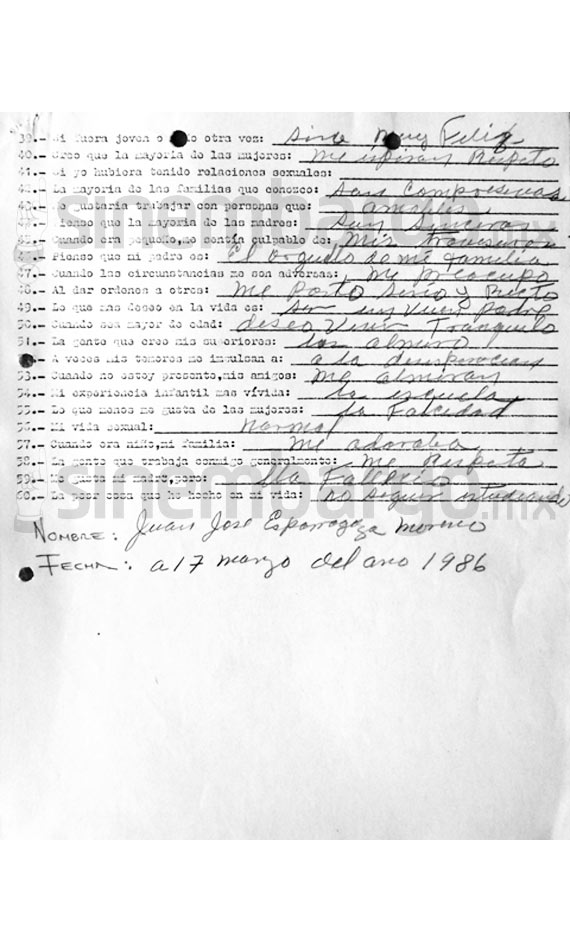 sinembargo.mx
39.- Si fuera joven o otra vez: sirve muy Feliz
40.- Creo que la mayoría de las mujeres: me inspiran Respeto
41.- Si yo hubiera tenido relaciones sexuales:
42.- La mayoría de las familias que conozco: son compresivas
43.- Me gustaría trabajar con personas que: amables
44.- Pienso que la mayoría de las madres: son sinceras
45.- Cuando era pequeño,me sentía culpable de: mis travesuras
46.- Pienso que mi padre es: El orgullo de mi familia
47.- Cuando las circunstancias me son adversas: me preocupo
48.- Al dar ordenes a otros: me porto serio y Recto
49.- Lo que mas deseo en la vida es: ser un Vuen padre
50.- Cuando sea mayor de edad: deseo Vivir Tranquilo
51.- La gente que creo mis superiores: los almiro
52.- A veces mis temores me impulsan a: a la desesperacion
53.- Cuando no estoy presente,mis amigos: me almiran
54.- Mi experiencia infantil mas vívida: la escuela
55.- Lo que menos me gusta de las mujeres: la Falcidad
56.- Mi vida sexual: normal
57.- Cuando era niño,mi familia: me adoraba
58.- La gente que trabaja conmigo generalmente: me Respeta
59.- Me gusta mi madre,pero: lla Fallecio
60.- La peor cosa que he hecho en mi vida: no seguir estudiando
sinembargo.mx
NOMBRE: Juan Jose Esparragoza Moreno
FECHA: a 17 marzo del ano 1986